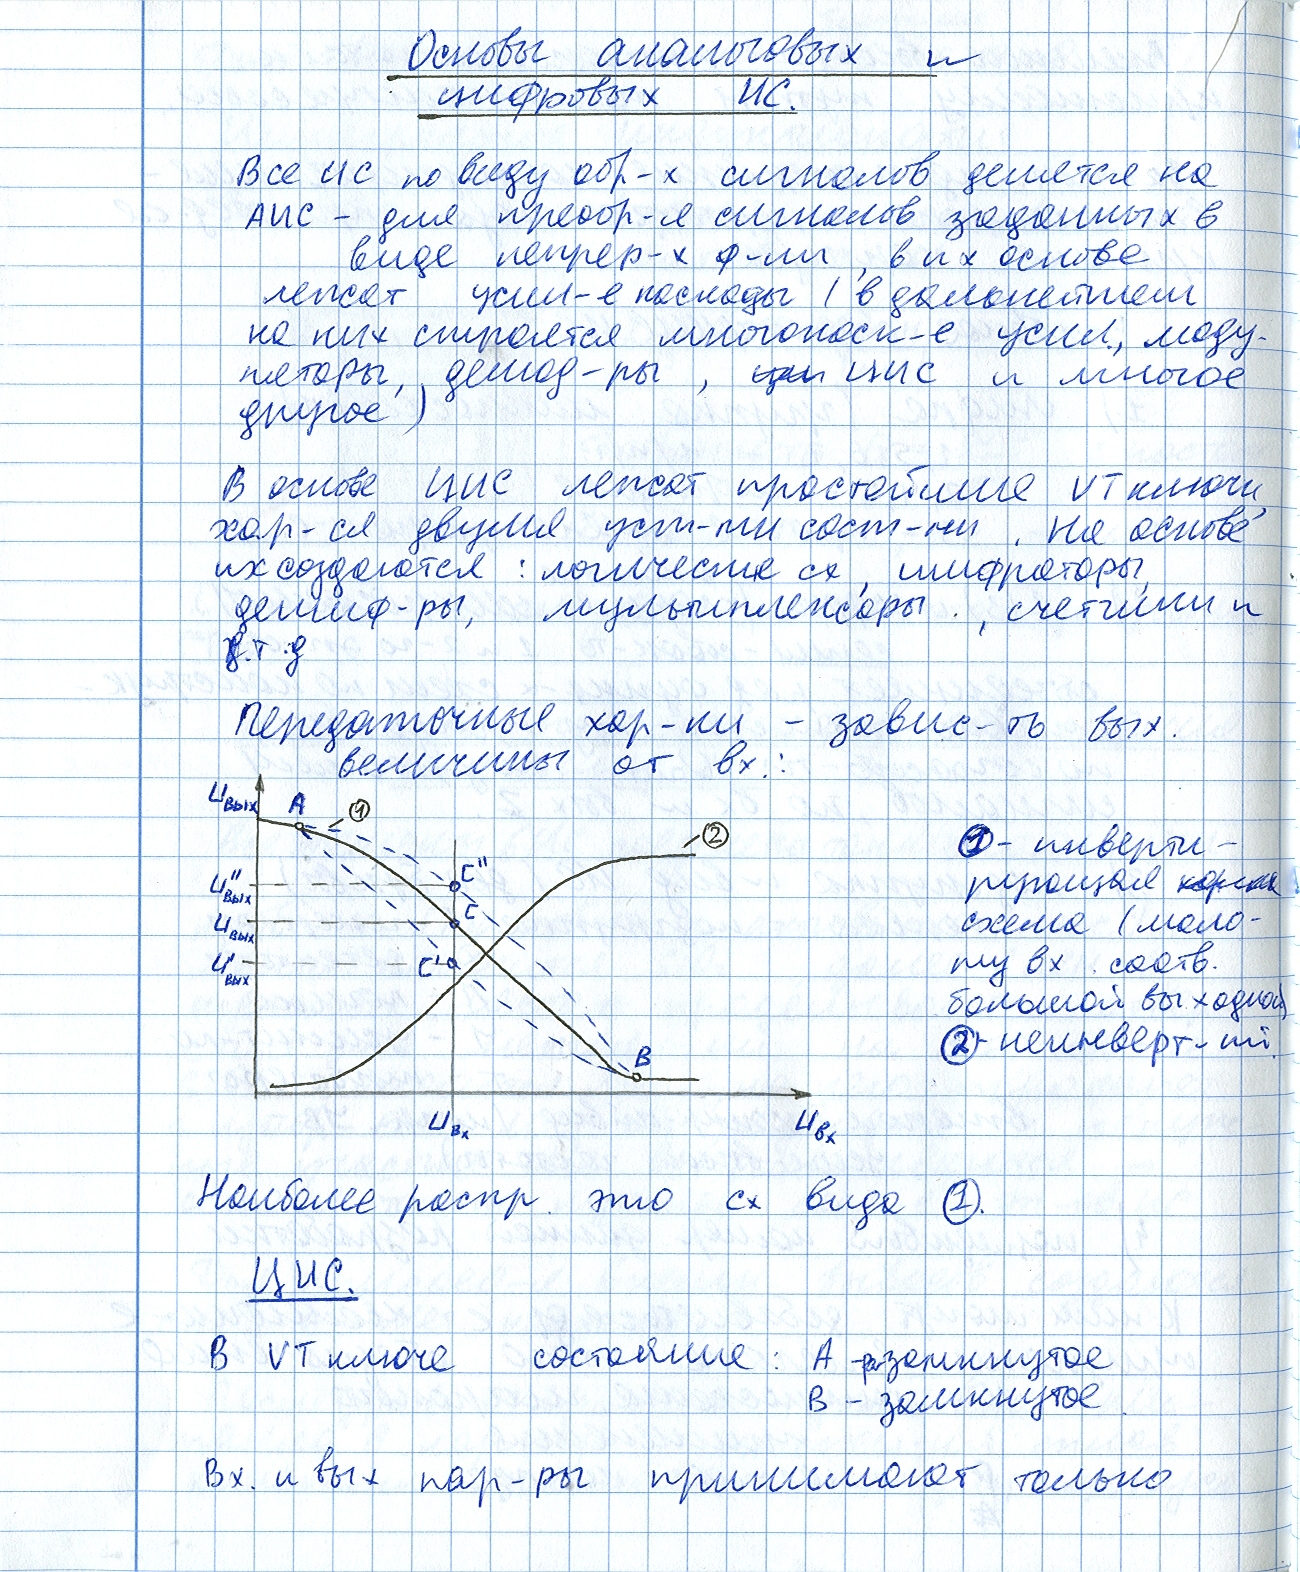 Основы аналоговых и
цифровых ИС.
Все ИС по виду обр-х сигналов делятся на
АИС - для преобр-я сигналов заданных в
виде непрер-х ф-ий, в их основе
лежат усил-е каскады (в дальнейшем
на них строятся многокаск-е усил., моду-
ляторы, демод-ры, ЦИС и многое
другое)
В основе ЦИС лежат простейшие VT ключи,
хар-ся двумя уст-ми сост-ми. На основе
их создаются: логические сх, шифраторы,
дешиф-ры, мультиплексоры., счетчики и
т.д
Передаточные хар-ки - завис-ть вых.
величины от вх.:
Uвых
A
1
2
U''вых
C''
Uвых
C
U'вых
C'
B
Uвх
Uвх
1 - инверти-
рующая
схема (мало-
му вх. соотв.
большой выходной)
2 - неинверт-й.
Наиболее распр. это сх вида 1.
ЦИС.
В VT ключе состояние: А - разомкнутое
В - замкнутое.
Вх. и вых пар-ры принимают только